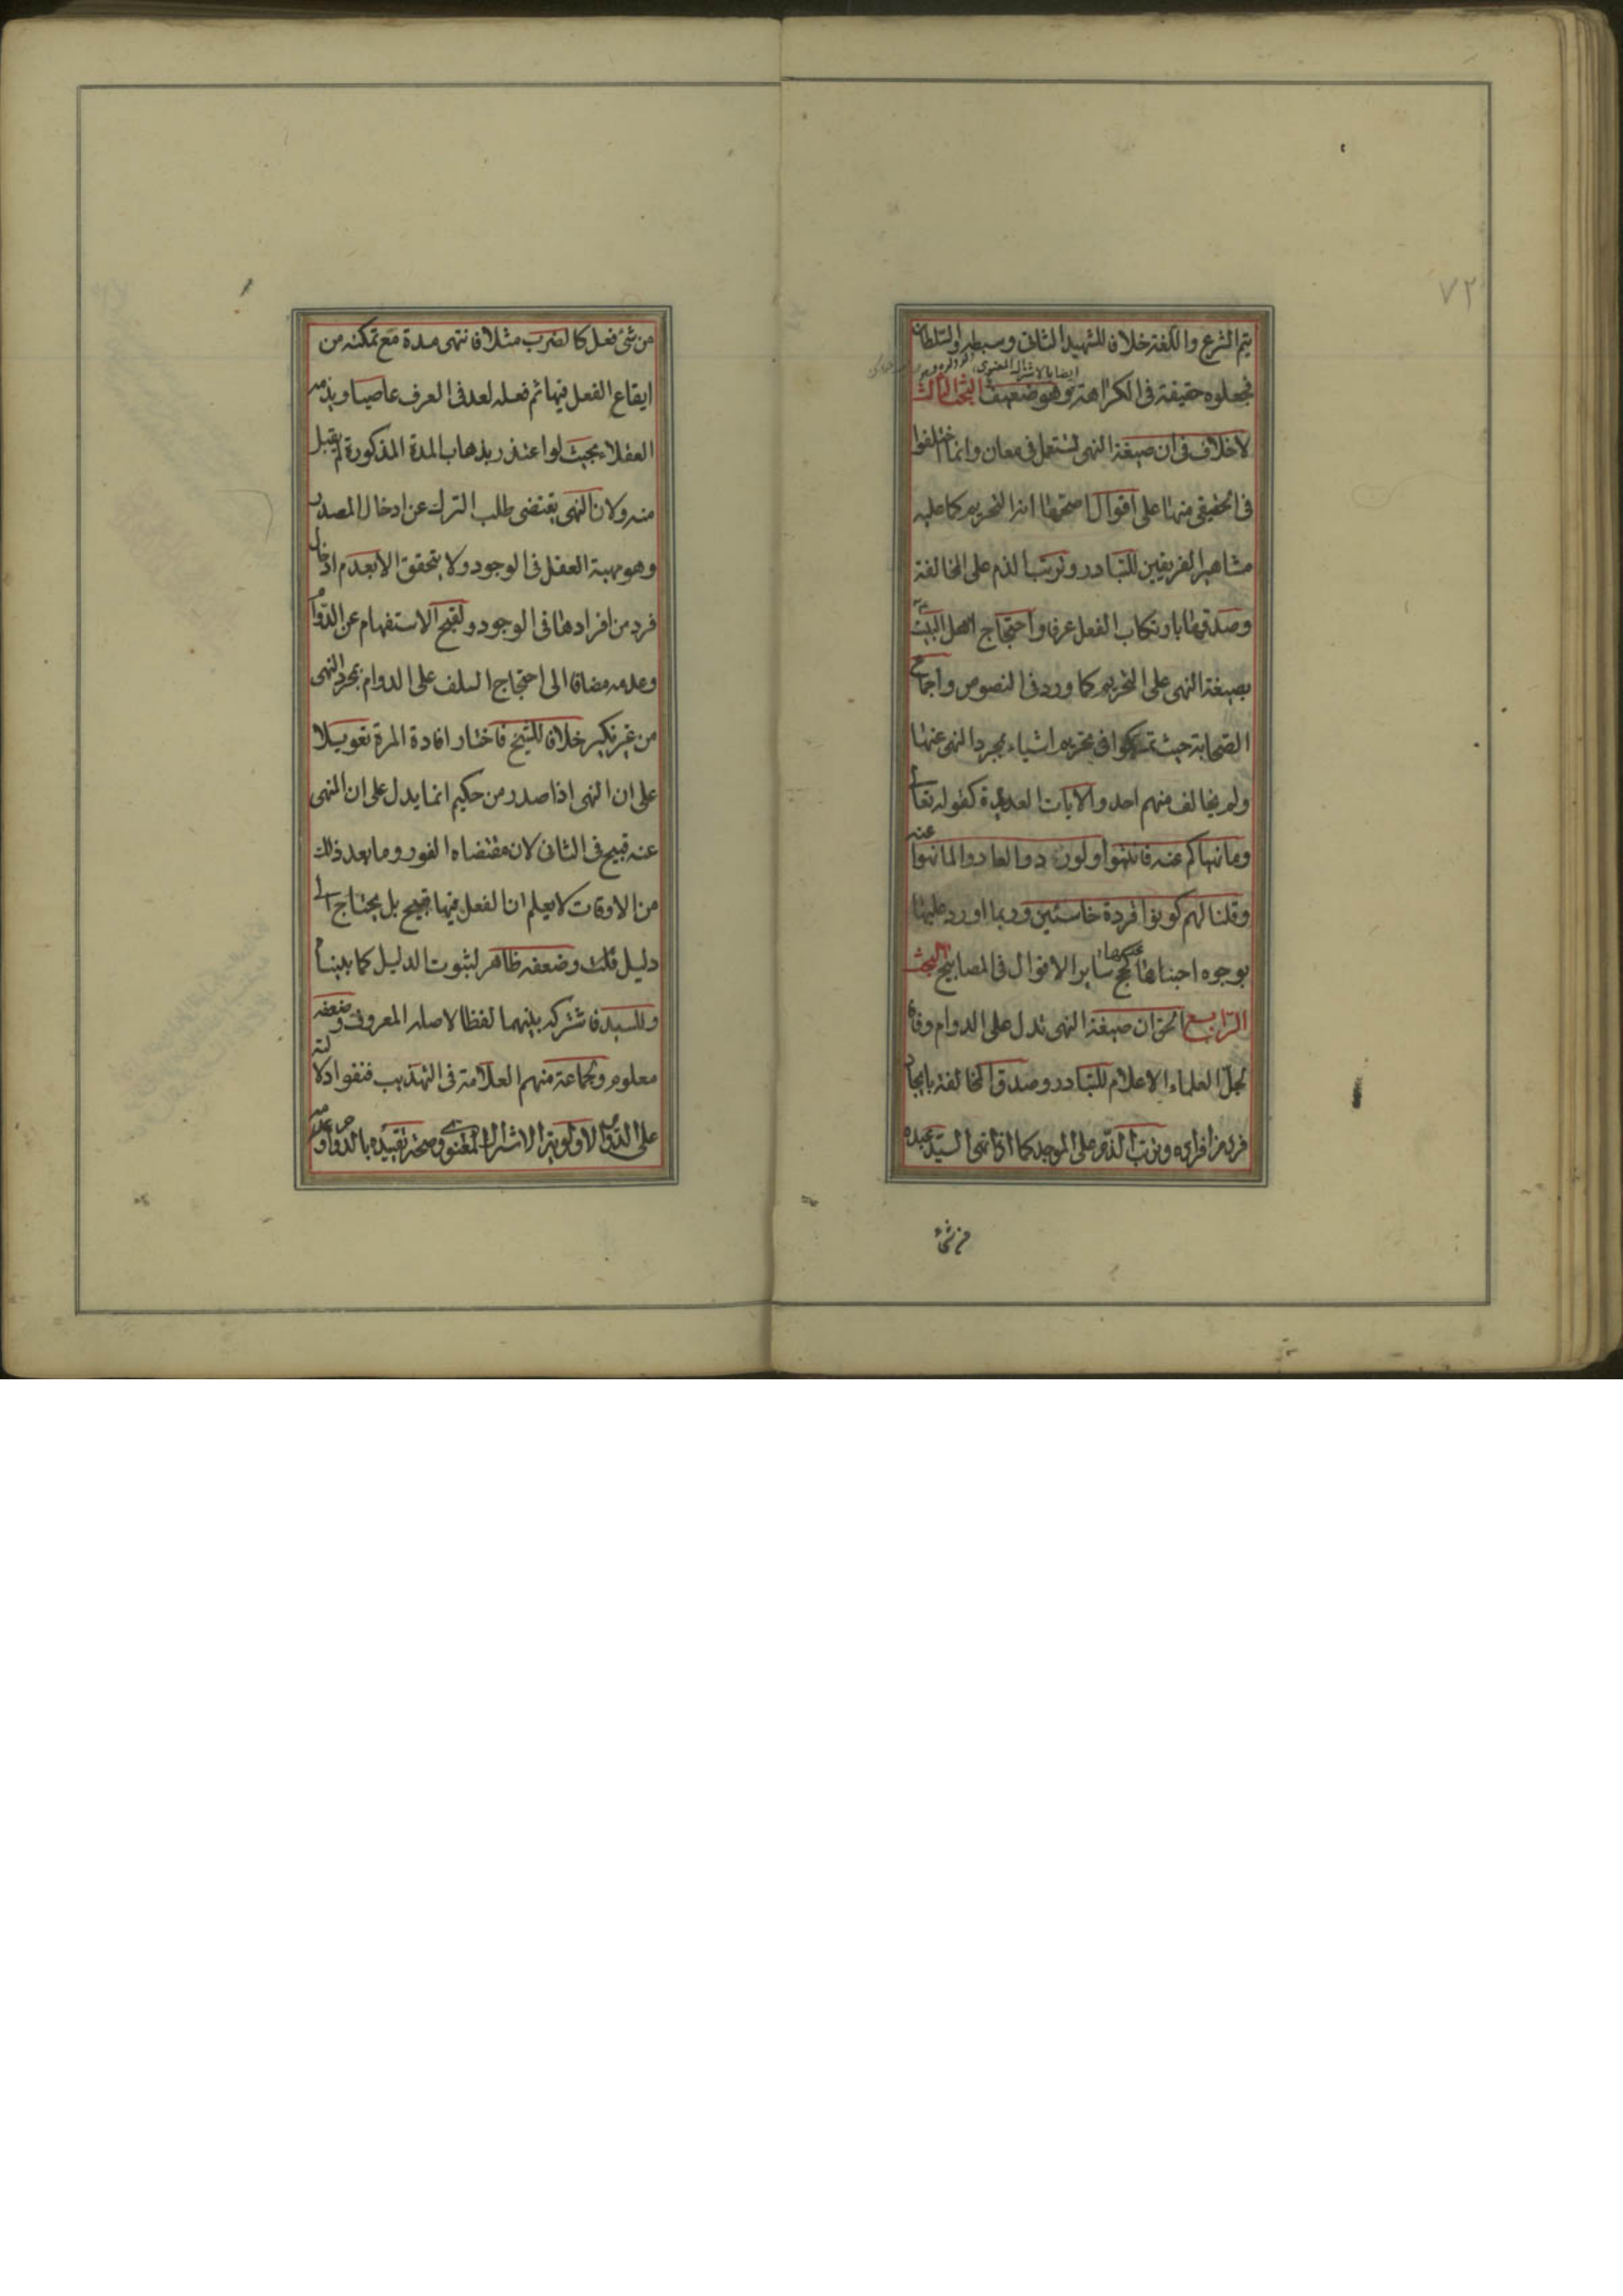 ٧٢
يتم الشرع واللغة خلافا للشهيد الثانى وسبطه والسلطان
ايضا بالاشتراك المعنوى
فجعلوه حقيقة فى الكراهة وهو ضعيف البحث الثالث
لا خلاف فى ان صيغة النهى تستعمل فى معان وانما اختلفوا
فى الحقيقى منها على اقوال اصحها انه التحريم كما عليه
مشاهير الفريقين للتبادر وترتب الذم على المخالفة
وصدقها بارتكاب الفعل عرفا واحتجاج اهل البيت
بصيغة النهى على التحريم كما ورد فى النصوص واجماع
الصحابة حيث تمسكوا فى تحريم اشياء بمجرد النهى عنها
ولم يخالف منهم احد والايات العديدة كقوله تعالى
وما نهاكم عنه فانتهوا ولو ردوا لعادوا لما نهوا عنه
وقلنا لهم كونوا قردة خاسئين وربما اورد عليها
بوجوه اجبنا عنها كحجج ساير الاقوال فى المصابيح البحث
الرابع الحق ان صيغة النهى تدل على الدوام وفاقا
لجل العلماء الاعلام للتبادر وصدق المخالفة بايجاد
فرد من افراده وترتب الذم على الموجد كما اذا نهى السيد عبده
من شئ
من شئ فعل كالضرب مثلا فانتهى مدة مع تمكنه من
ايقاع الفعل فيها ثم فعله لعد فى العرف عاصيا ويذمه
العقلاء بحيث لو اعتذر بذهاب المدة المذكورة لم يقبل
منه ولان النهى يقتضى طلب الترك عن ادخال المصدر
وهو مهية العقل فى الوجود ولا يتحقق الا بعدم ادخال
فرد من افرادها فى الوجود ولقبح الاستفهام عن الدوام
وعدمه مضافا الى احتجاج السلف على الدوام بمجرد النهى
من غير نكير خلافا للشيخ فاختار افادة المرة تعويلا
على ان النهى اذا صدر من حكيم انما يدل على ان المنهى
عنه قبيح فى الثانى لان مقتضاه الفور وما بعد ذلك
من الاوقات لا يعلم ان الفعل فيها قبيح بل يحتاج الى
دليل قلت وضعفه ظاهر لثبوت الدليل كما بيناه
وللسيد فاشتركه بينهما لفظا لاصله المعروف وضعفه
معلوم ولجماعة منهم العلامة فى التهذيب فنفوا دلالته
على الدوام لاولوية الاشتراك المعنوى وصحة تقييده بالدوام وعدمه